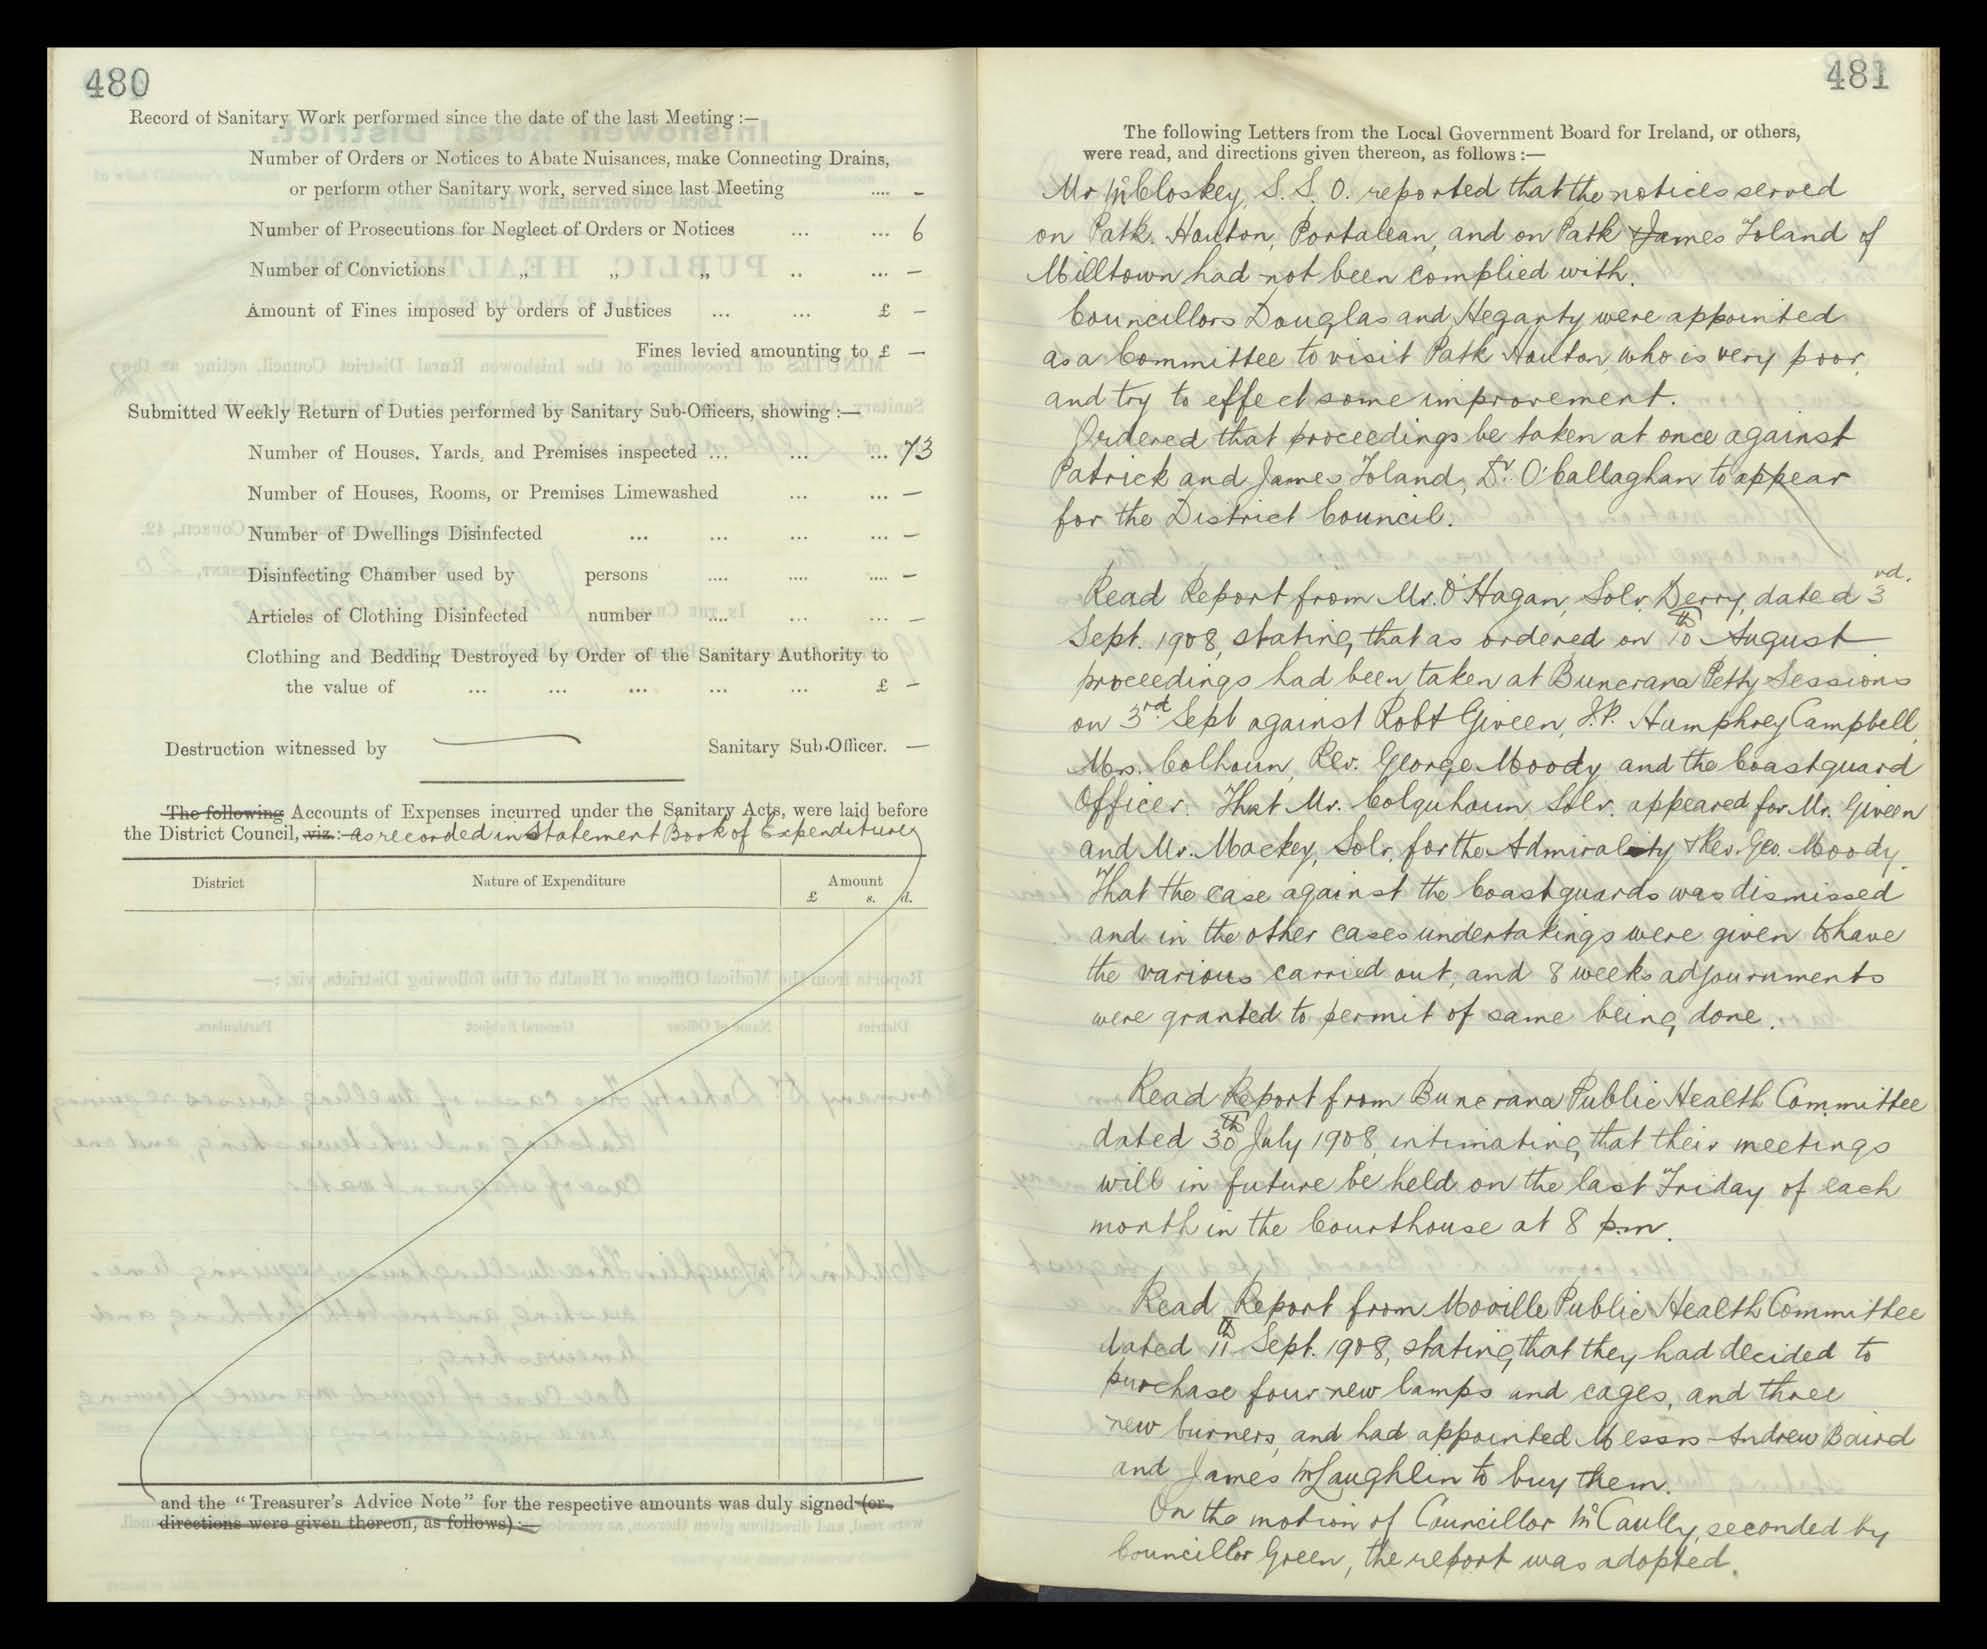 480
Record of Sanitary Work performed since the date of the last Meeting :—
Number of Orders or Notices to Abate Nuisances, make Connecting Drains,
or perform other Sanitary work, served since last Meeting .... —
Number of Prosecutions for Neglect of Orders or Notices ... ... 6
Number of Convictions „ „ „ .. ... —
Amount of Fines imposed by orders of Justices ... ... £ —
Fines levied amounting to £ —
Submitted Weekly Return of Duties performed by Sanitary Sub-Officers, showing :—
Number of Houses, Yards, and Premises inspected ... ... ... 73
Number of Houses, Rooms, or Premises Limewashed ... ... —
Number of Dwellings Disinfected ... ... ... ... —
Disinfecting Chamber used by persons .... .... .... —
Articles of Clothing Disinfected number .... ... ... —
Clothing and Bedding Destroyed by Order of the Sanitary Authority to
the value of ... ... ... ... ... £ —
Destruction witnessed by — Sanitary Sub-Officer. —
The following Accounts of Expenses incurred under the Sanitary Acts, were laid before
the District Council, viz.:— as recorded in Statement Book of Expenditure
District Nature of Expenditure Amount
£ s. d.
and the "Treasurer's Advice Note" for the respective amounts was duly signed (or
directions were given thereon, as follows) :—
481
The following Letters from the Local Government Board for Ireland, or others,
were read, and directions given thereon, as follows :—
Mr McCloskey, S. S. O. reported that the notices served
on Patk. Houton, Portalean, and on Patk & James Toland of
Milltown had not been complied with.
Councillors Douglas and Hegarty were appointed
as a Committee to visit Patk Houton, who is very poor,
and try to effect some improvement.
Ordered that proceedings be taken at once against
Patrick and James Toland, Dr. O'Callaghan to appear
for the District Council.
Read Report from Mr. O'Hagan, Solr. Derry, dated 3rd.
Sept. 1908, stating that as ordered on 10th August
proceedings had been taken at Buncrana Petty Sessions
on 3rd. Sept against Robt Giveen, J.P. Humphrey Campbell,
Mrs. Colhoun, Rev. George Moody and the Coastguard
Officer. That Mr. Colquhoun, Solr. appeared for Mr. Giveen
and Mr. Mackey, Solr, for the Admirality & Rev. Geo. Moody.
That the case against the Coastguards was dismissed
and in the other cases undertakings were given to have
the various carried out, and 8 weeks adjournments
were granted to permit of same being done.
Read Report from Buncrana Public Health Committee
dated 30th July 1908, intimating that their meetings
will in future be held on the last Friday of each
month in the Courthouse at 8 p.m.
Read Report from Moville Public Health Committee
dated 11th Sept. 1908, stating that they had decided to
purchase four new lamps and cages, and three
new burners, and had appointed Messrs Andrew Baird
and James McLaughlin to buy them.
On the motion of Councillor McCaully, seconded by
Councillor Green, the report was adopted.